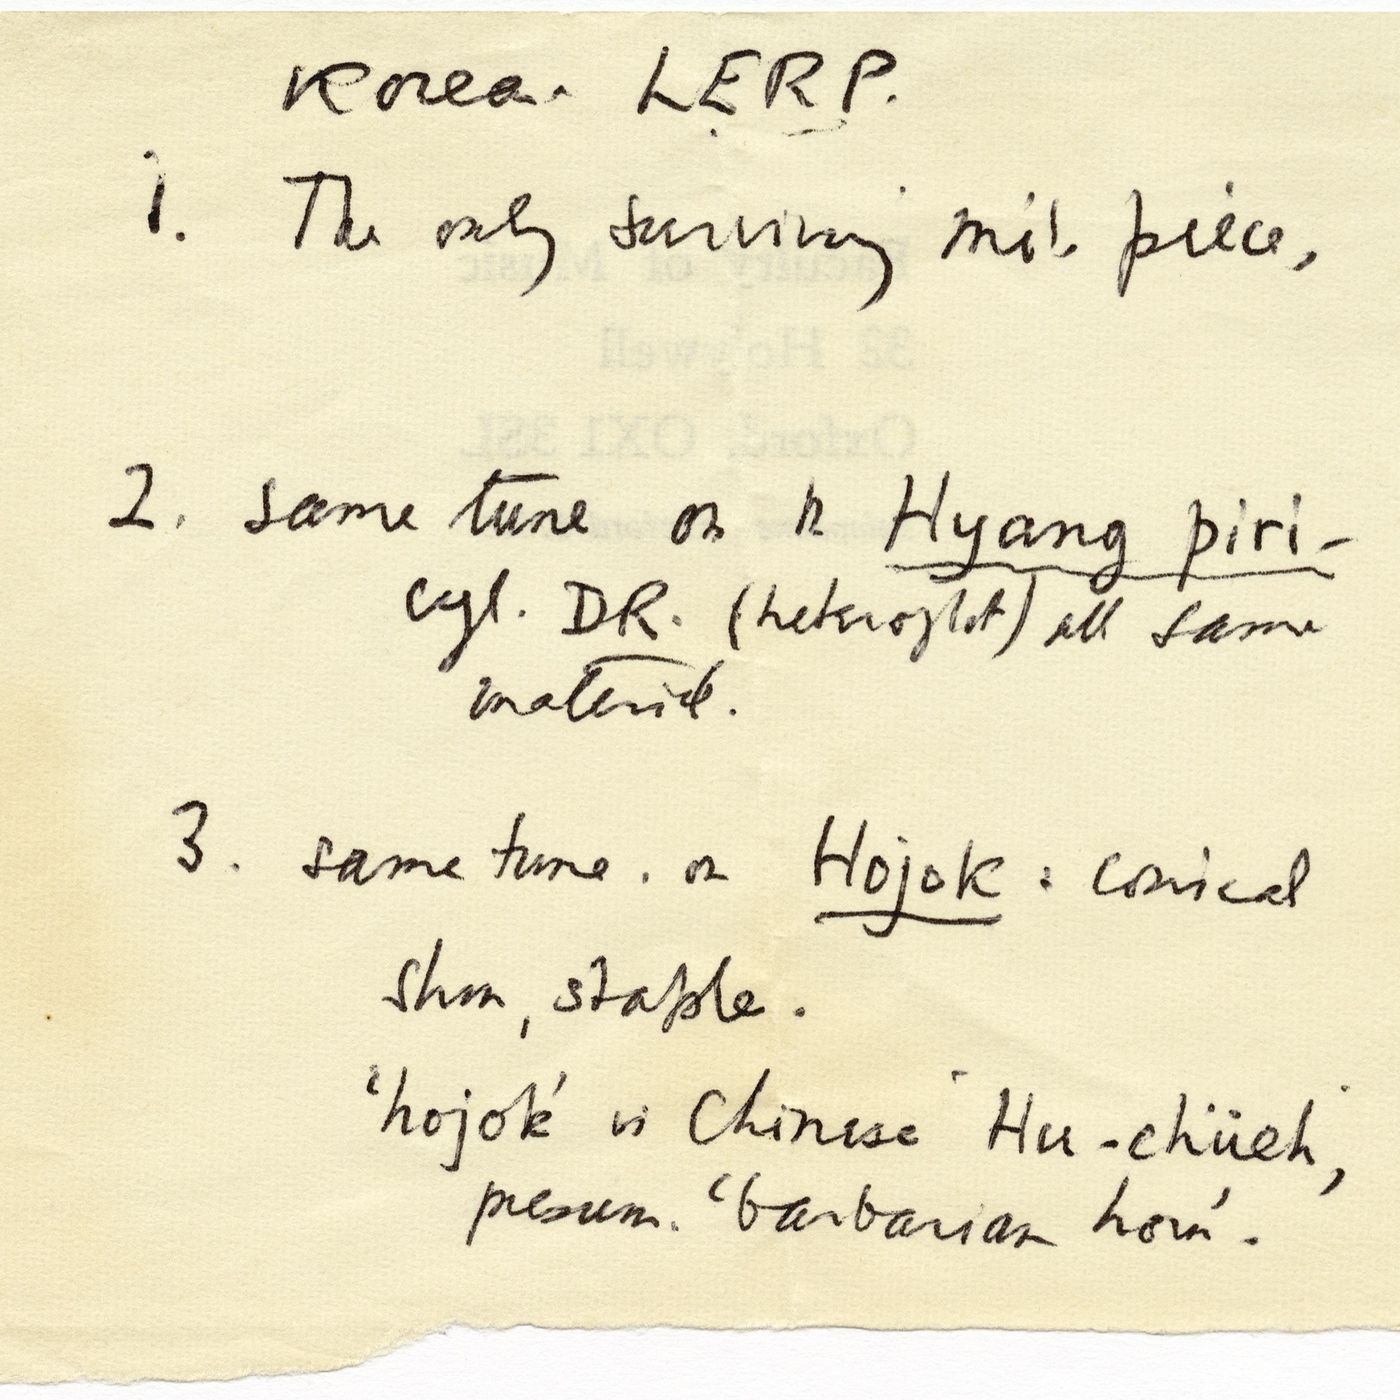 Korean LERP.
1. The only surviving mil. piece,
2. same tune on h Hyang piri-
cyl. DR. (heteroglot) all same
material.
3. same tune. on Hojok: conical
shm, staple.
'hojok' is Chinese Hu-chüeh,
presum. 'barbarian horn'.
Faculty of Music
32 Holywell
Oxford. OX1 3SL